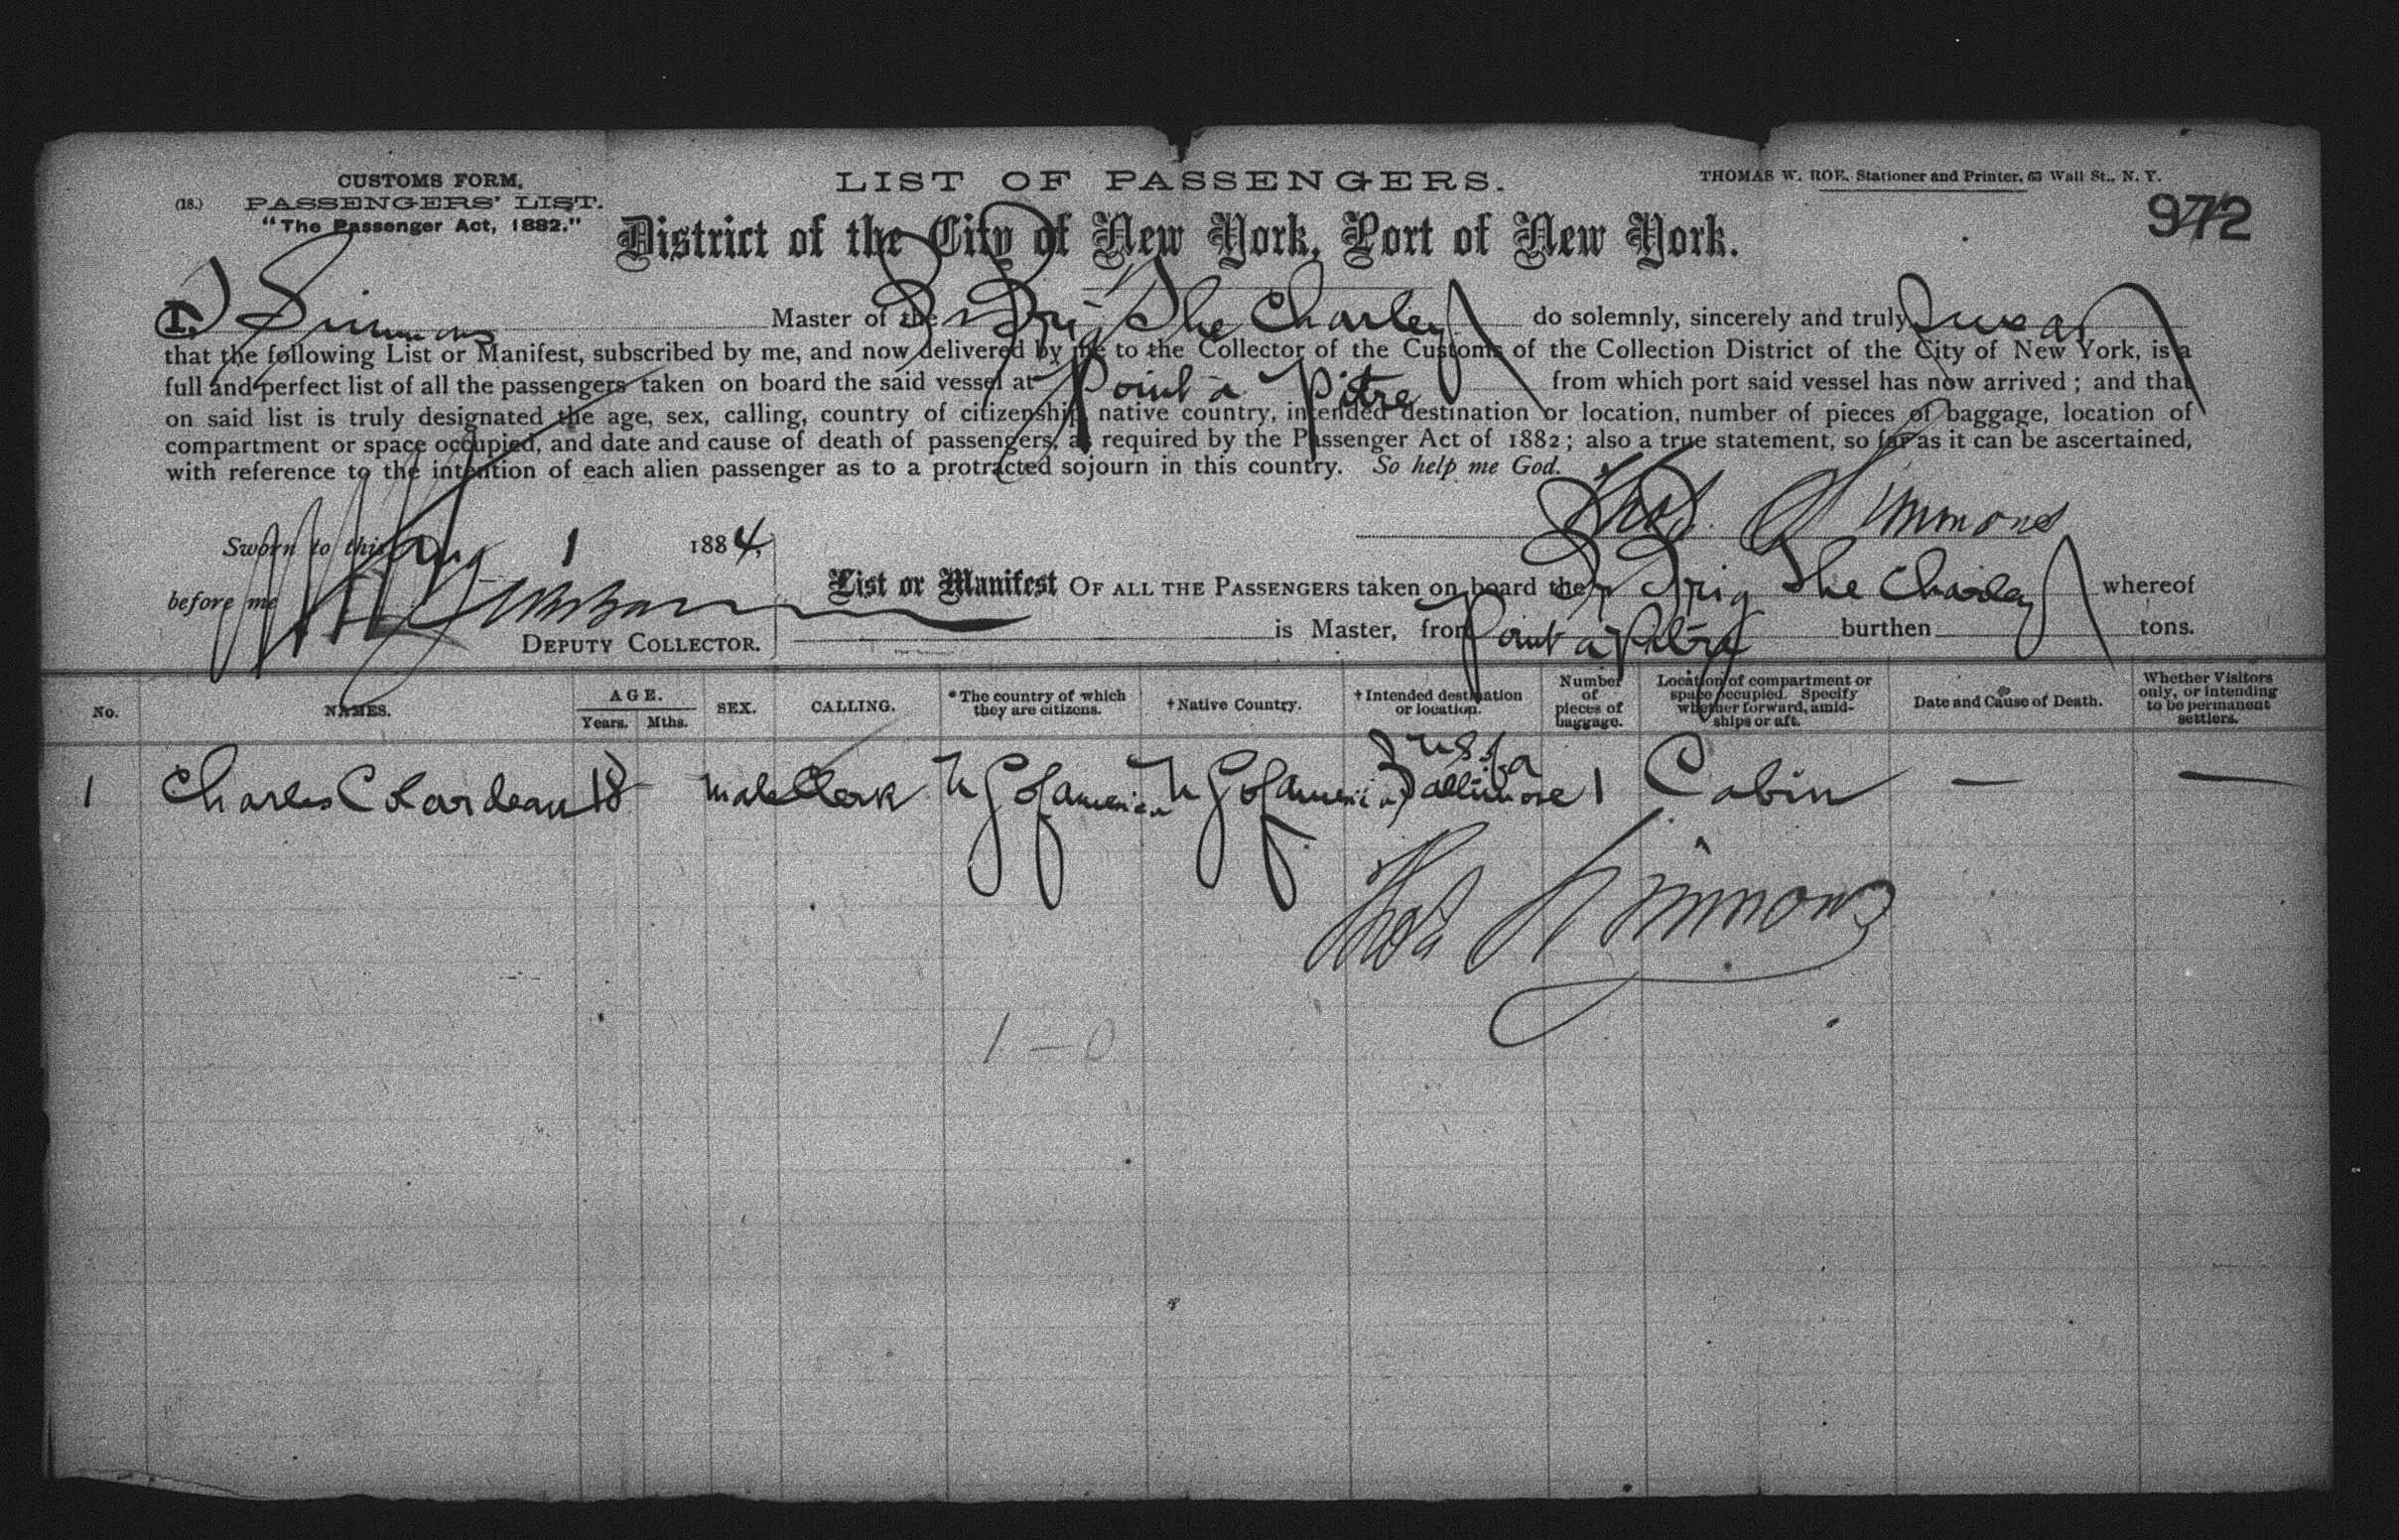 CUSTOMS FORM,
(18.) PASSENGERS' LIST.
"The Passenger Act, 1882."
LIST OF PASSENGERS.
THOMAS W. ROE, Stationer and Printer, 63 Wall St., N. Y.
972
District of the City of New York, Port of New York.
I, Simmons Master of the Br Brig The Charley do solemnly, sincerely and truly Swear
that the following List or Manifest, subscribed by me, and now delivered by me to the Collector of the Customs of the Collection District of the City of New York, is a
full and perfect list of all the passengers taken on board the said vessel at Point a Pitre from which port said vessel has now arrived; and that
on said list is truly designated the age, sex, calling, country of citizenship, native country, intended destination or location, number of pieces of baggage, location of
compartment or space occupied, and date and cause of death of passengers, as required by the Passenger Act of 1882; also a true statement, so far as it can be ascertained,
with reference to the intention of each alien passenger as to a protracted sojourn in this country. So help me God.
Thos. Simmons
Sworn to this Aug 1 1884,
before me
DEPUTY COLLECTOR.
List or Manifest OF ALL THE PASSENGERS taken on board the Br Brig The Charley whereof
is Master, from Point a Pitre burthen tons.
No. NAMES. AGE. Years. Mths. SEX. CALLING. *The country of which they are citizens. †Native Country. †Intended destination or location. Number of pieces of baggage. Location of compartment or space occupied. Specify whether forward, amidships or aft. Date and Cause of Death. Whether Visitors only, or intending to be permanent settlers.
1 Charles Colardeau 18 male Clerk U S of America U S of America Baltimore U S of a 1 Cabin — —
Thos Simmons
1 – 0